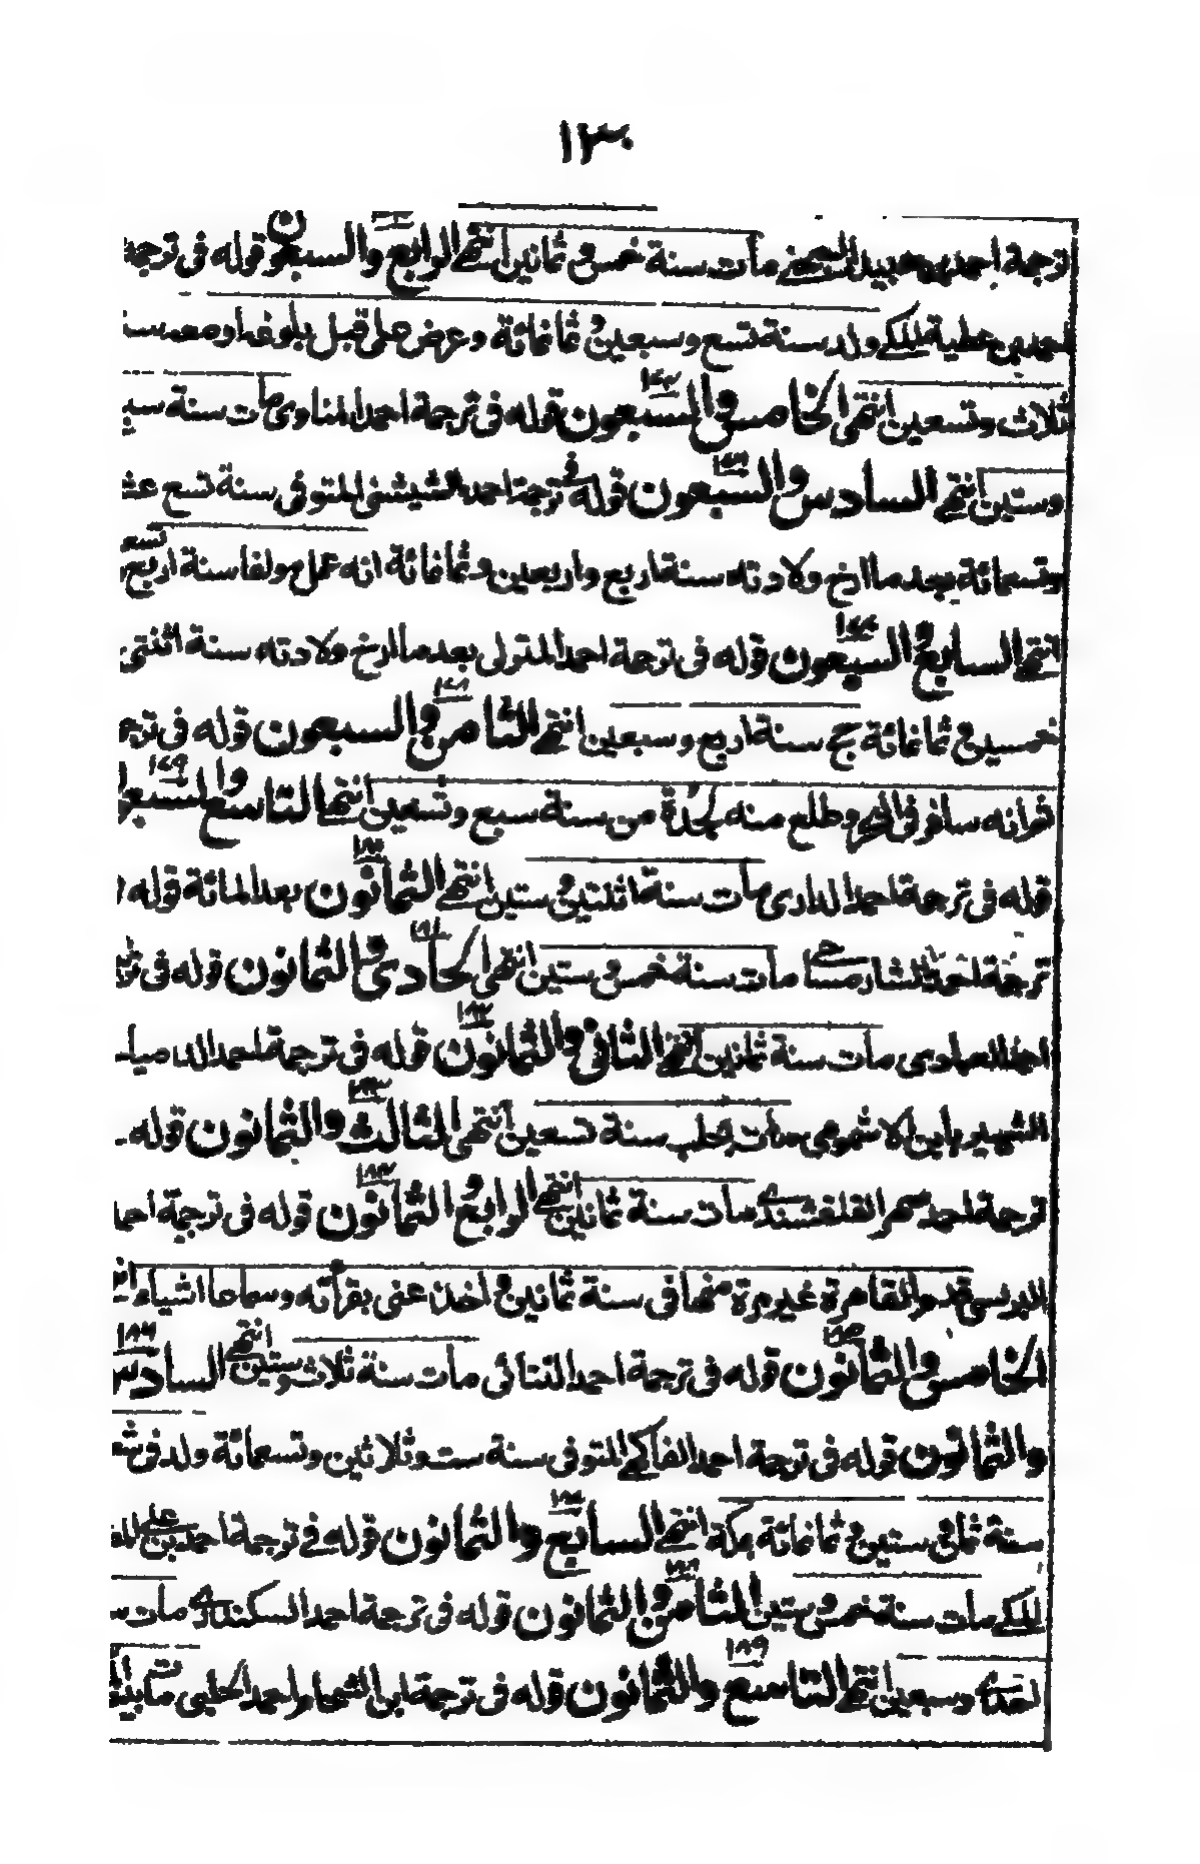 ١٣٠
ترجمة احمد بن عبيد السجيني مات سنة خمس وثمانين انتهى الرابع والسبعون قوله في ترجمة
احمد بن عطية المكي ولد سنة تسع وسبعين وثمانمائة وعرض علي قبل بلوغه او معه سنة
ثلاث وتسعين انتهى الخامس والسبعون قوله في ترجمة احمد المناوى مات سنة سبع
وستين انتهى السادس والسبعون قوله في ترجمة احمد الشيشني المتوفى سنة تسع عشر
وتسعمائة بعد ما ارخ ولادته سنة اربع واربعين وثمانمائة انه عمل مولفا سنة اربع تسعين
انتهى السابع والسبعون قوله في ترجمة احمد المتولى بعد ما ارخ ولادته سنة اثنتى
خمسين وثمانمائة حج سنة اربع وسبعين انتهى الثامن والسبعون قوله في ترجمة
قرانه سافر في البحر وطلع منه لجدة من سنة سبع وتسعين انتهى التاسع والسبعون ١٧٩
قوله في ترجمة احمد الدارى مات سنة اثنتين وستين انتهى الثمانون ١٨٠ بعد المائة قوله
ترجمة احمد الشارمساحى مات سنة خمس وستين انتهى الحادى والثمانون ١٨١ قوله في ترجمة
احمد العبادى مات سنة ثمانين انتهى الثانى والثمانون قوله في ترجمة احمد الدمياطى
الشهير بابن الاشمومى مات بحلب سنة تسعين انتهى الثالث والثمانون قوله
ترجمة احمد القلقشندى مات سنة ثمانين انتهى الرابع الثمانون قوله في ترجمة احمد
قدم القاهرة غير مرة منها في سنة ثمانين واخذ عنى بقرأته وسماعا اشياء انتهى
الخامس والثمانون ١٨٥ قوله في ترجمة احمد التتائى مات سنة ثلاث وستين انتهى السادس ١٨٦
والثمانون قوله في ترجمة احمد الفاكهى المتوفى سنة ست وثلاثين وتسعمائة ولد في
سنة ثمان وستين وثمانمائة بمكة انتهى السابع والثمانون قوله في ترجمة احمد بن علي
المكي مات سنة خمس وستين الثامن والثمانون قوله في ترجمة احمد السكندرى مات
احدى وسبعين انتهى التاسع والثمانون ١٨٩ قوله في ترجمة ابن الشماع احمد الحلبى مات